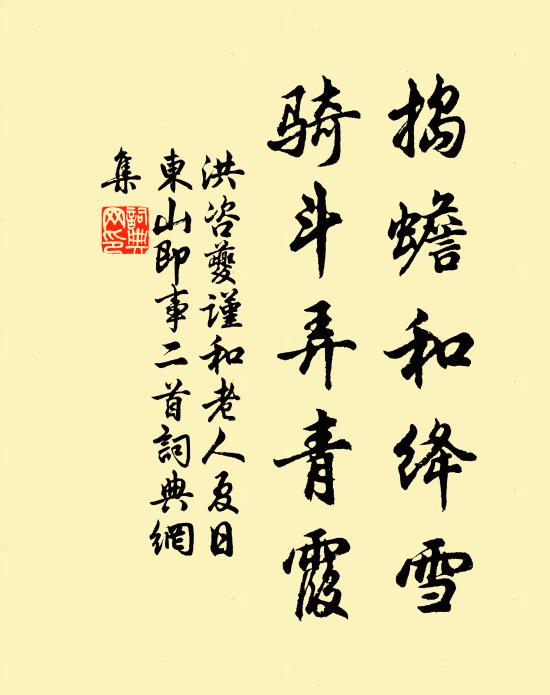 搗蟾和绛雪
骑斗弄青霞
洪咨夔谨和老人夏日
東山即事二首詞典網
集
詞典網印